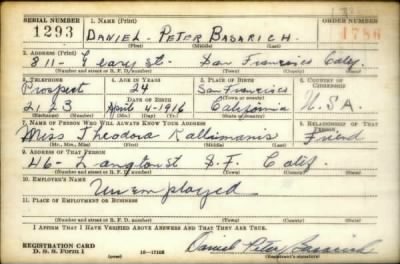 SERIAL NUMBER 1. NAME (Print) ORDER NUMBER
1293 DANIEL - PETER BASARICH 1786
(First) (Middle) (Last)
2. ADDRESS (Print)
811 - Geary st. San Francisco Calif.
(Number and street or R. F. D. number) (Town) (County) (State)
3. TELEPHONE 4. AGE IN YEARS 5. PLACE OF BIRTH 6. COUNTRY OF CITIZENSHIP
Prospect 24 San Francisco
DATE OF BIRTH (Town or county)
2123 April 4-1916 California U.S.A.
(Exchange) (Number) (Mo.) (Day) (Yr.) (State or country)
7. NAME OF PERSON WHO WILL ALWAYS KNOW YOUR ADDRESS 8. RELATIONSHIP OF THAT PERSON
Miss Theodora Kallimanis Friend
(Mr., Mrs., Miss) (First) (Middle) (Last)
9. ADDRESS OF THAT PERSON
46- Langton st S.F. Calif.
(Number and street or R. F. D. number) (Town) (County) (State)
10. EMPLOYER'S NAME
Unemployed
11. PLACE OF EMPLOYMENT OR BUSINESS
(Number and street or R. F. D. number) (Town) (County) (State)
I AFFIRM THAT I HAVE VERIFIED ABOVE ANSWERS AND THAT THEY ARE TRUE.
REGISTRATION CARD
D. S. S. Form 1 (over) 16-17105 Daniel Peter Basarich
(Registrant's signature)